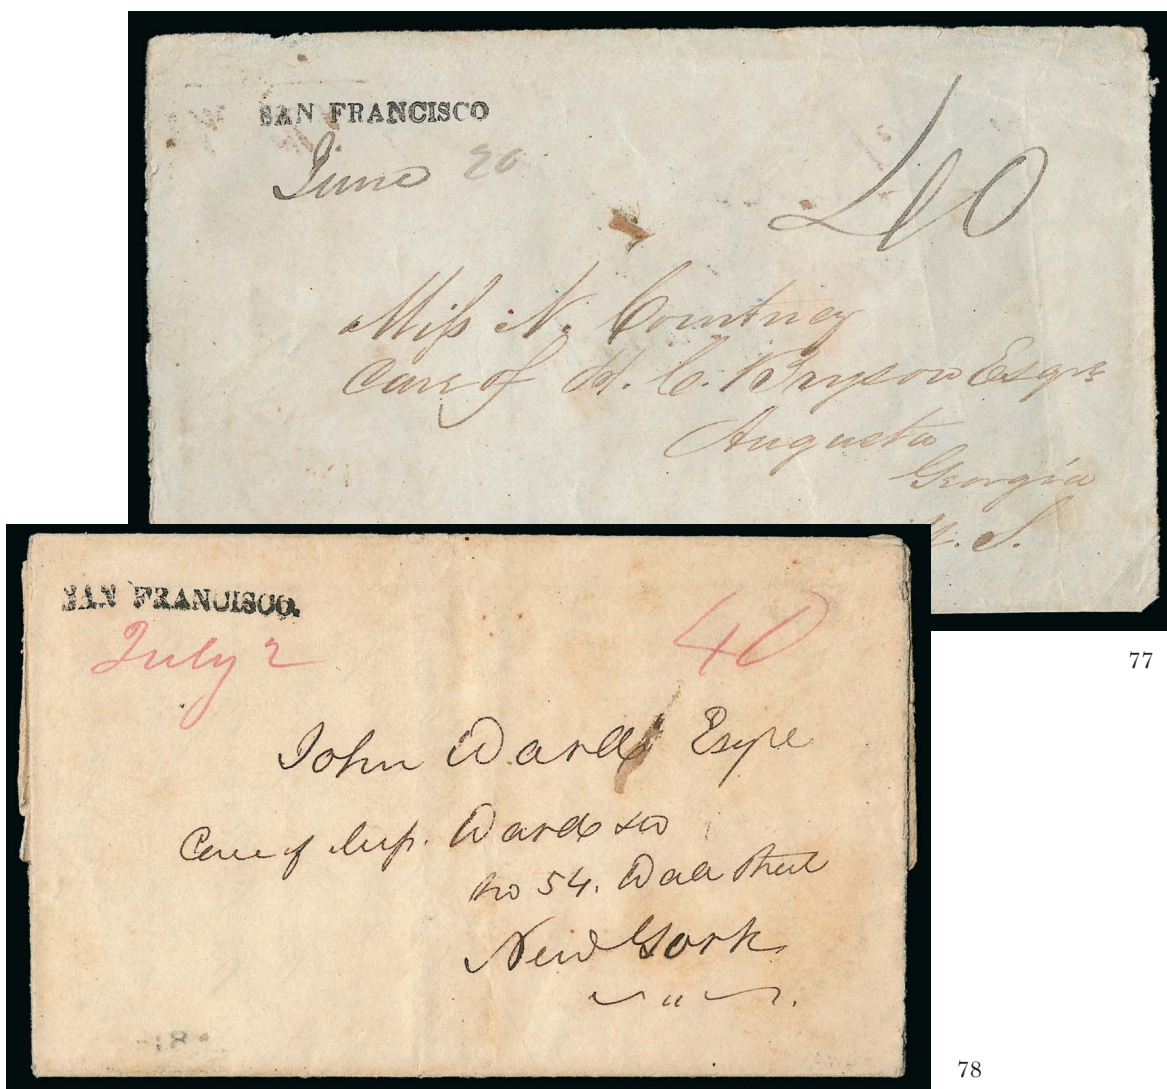 SAN FRANCISCO
June 20
40
Miss N. Courtney
Care of H. C. Bryson Esqre
Augusta
Georgia
U.S.
77
SAN FRANCISCO
July 2
40
John Ward Esqre
Care of Ward
No 54. Wall Street
New York
78